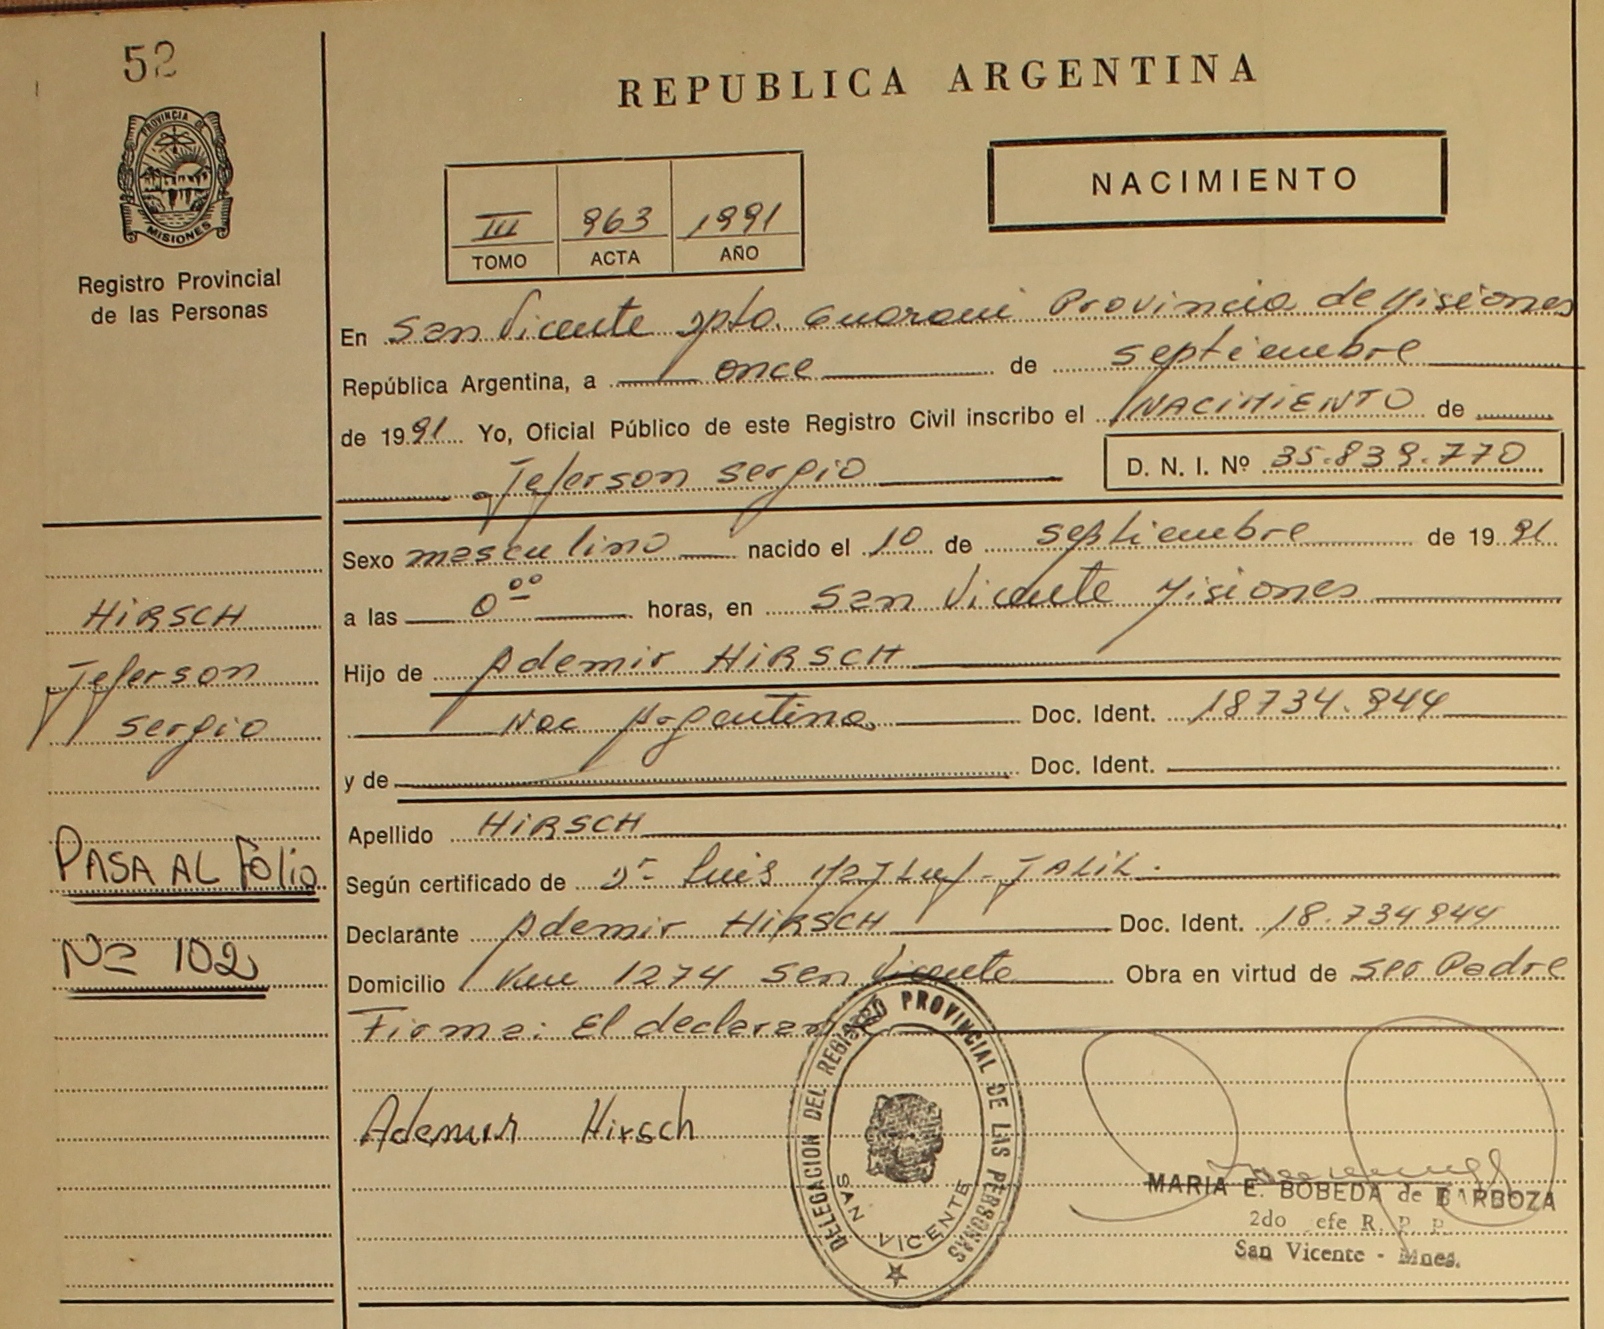 52
PROVINCIA DE
MISIONES
Registro Provincial
de las Personas
HIRSCH
Jeferson
Sergio
PASA AL Folio
Nº 102
REPUBLICA ARGENTINA
NACIMIENTO
III 963 1991
TOMO ACTA AÑO
En San Vicente Dpto. Guarani Provincia de Misiones
República Argentina, a once de septiembre
de 1991 Yo, Oficial Público de este Registro Civil inscribo el NACIMIENTO de
Jeferson Sergio D. N. I. Nº 35.839.770
Sexo masculino nacido el 10 de septiembre de 1991
a las 0⁰⁰ horas, en San Vicente Misiones
Hijo de Ademir HIRSCH
Nac Argentina Doc. Ident. 18734.944
y de Doc. Ident.
Apellido HIRSCH
Según certificado de Dr Luis JALIL.
Declarante Ademir HIRSCH Doc. Ident. 18.734944
Domicilio Km 1274 San Vicente Obra en virtud de ser Padre
Firma: El declarante
Ademir Hirsch
DELEGACION DEL REGISTRO PROVINCIAL DE LAS PERSONAS
SAN VICENTE
MARIA E. BOBEDA de BARBOZA
2do efe R. P. P.
San Vicente - Mnes.